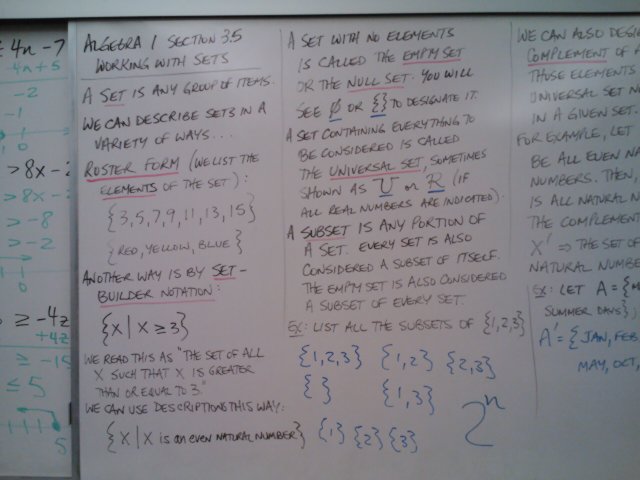 4n - 7
4n + 5
-2
-1
1
0
> 8x - 2
> 8x -
> -8
> -2
1
0
≥ -4z
+4z
≥ -15
≤ 5
5
ALGEBRA 1 SECTION 3.5
WORKING WITH SETS
A SET IS ANY GROUP OF ITEMS.
WE CAN DESCRIBE SETS IN A
VARIETY OF WAYS...
ROSTER FORM (WE LIST THE
ELEMENTS OF THE SET):
{3,5,7,9,11,13,15}
{RED, YELLOW, BLUE}
ANOTHER WAY IS BY SET-
BUILDER NOTATION:
{X | X ≥ 3}
WE READ THIS AS "THE SET OF ALL
X SUCH THAT X IS GREATER
THAN OR EQUAL TO 3."
WE CAN USE DESCRIPTIONS THIS WAY:
{X | X IS AN EVEN NATURAL NUMBER}
A SET WITH NO ELEMENTS
IS CALLED THE EMPTY SET
OR THE NULL SET. YOU WILL
SEE Ø OR {} TO DESIGNATE IT.
A SET CONTAINING EVERYTHING TO
BE CONSIDERED IS CALLED
THE UNIVERSAL SET, SOMETIMES
SHOWN AS U OR R (IF
ALL REAL NUMBERS ARE INDICATED).
A SUBSET IS ANY PORTION OF
A SET. EVERY SET IS ALSO
CONSIDERED A SUBSET OF ITSELF.
THE EMPTY SET IS ALSO CONSIDERED
A SUBSET OF EVERY SET.
EX: LIST ALL THE SUBSETS OF {1,2,3}
{1,2,3} {1,2} {2,3}
{ } {1,3}
{1} {2} {3} 2ⁿ
WE CAN ALSO
COMPLEMENT OF
THOSE ELEMENTS
UNIVERSAL SET
IN A GIVEN SET.
FOR EXAMPLE, LET
BE ALL EVEN
NUMBERS. THEN,
IS ALL NATURAL
THE COMPLEMENT
X' ⇒ THE SET OF
NATURAL
EX: LET A = {
SUMMER DAYS};
A' = {JAN, FEB
MAY, OCT,